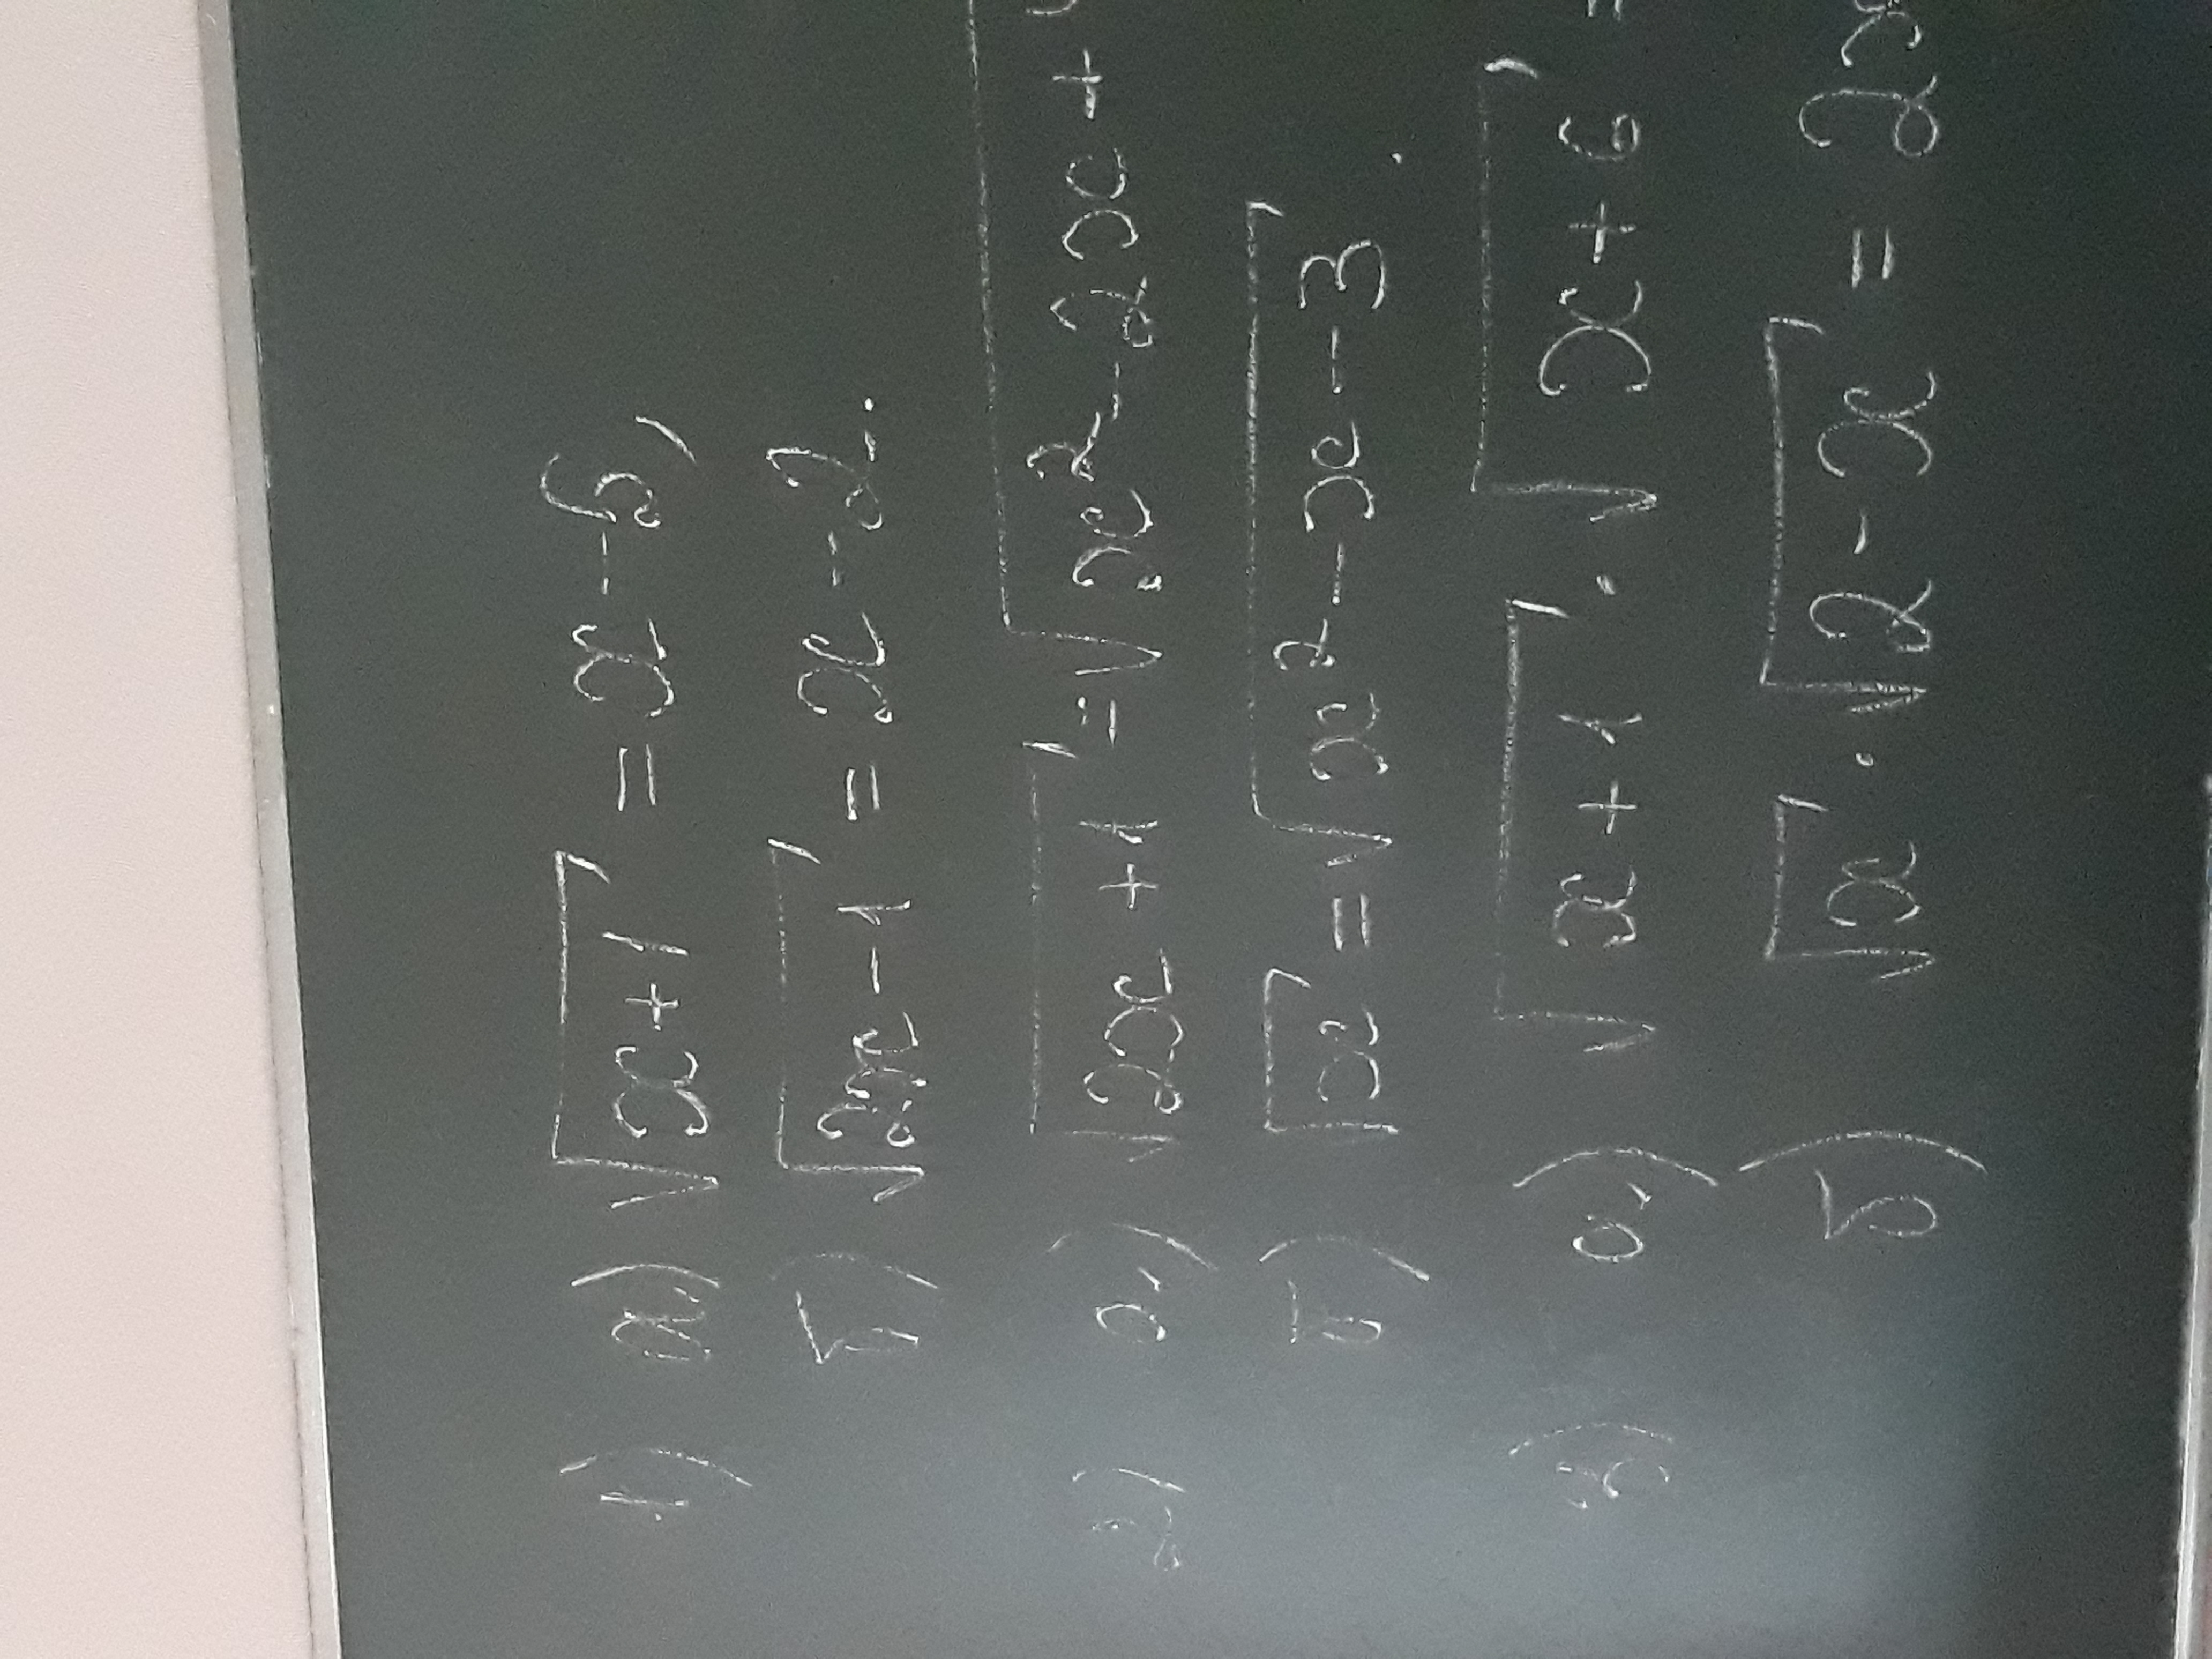 1) а) √(x+1) = x-5,
б) √(2x-1) = x-2.
2) а) √(2x+1) = √(x²-2x+
б) √x = √(x²-x-3).
3) а) √(x+1) · √(x+6) =
б) √x · √(2-x) = 2x